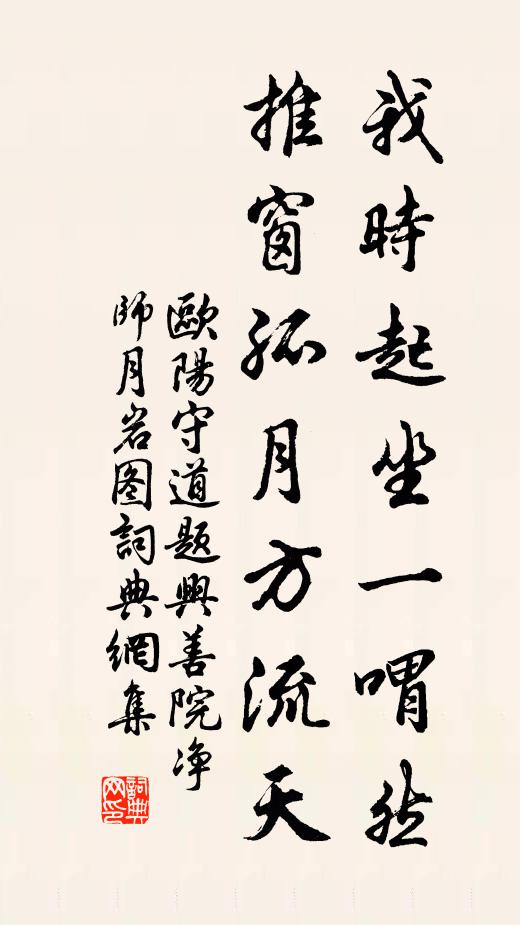 我時起坐一喟然
推窗孤月方流天
歐陽守道題興善院净
師月岩图詞典網集
詞典网印